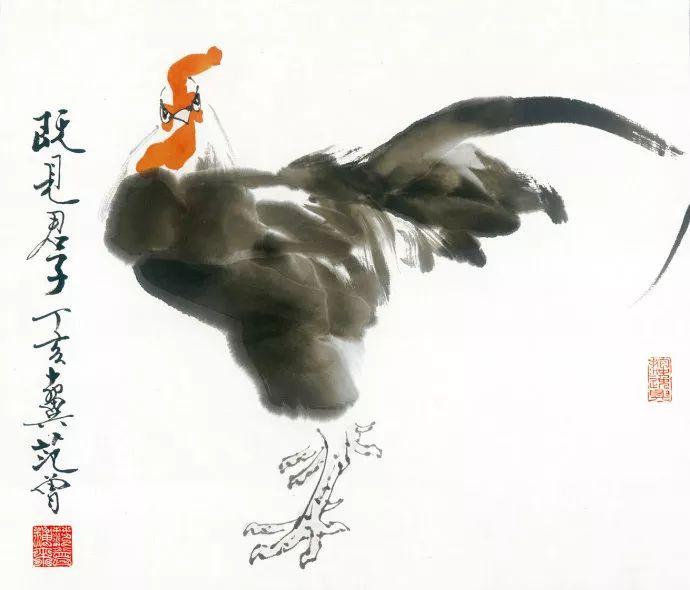 既见君子丁亥十翼范曾